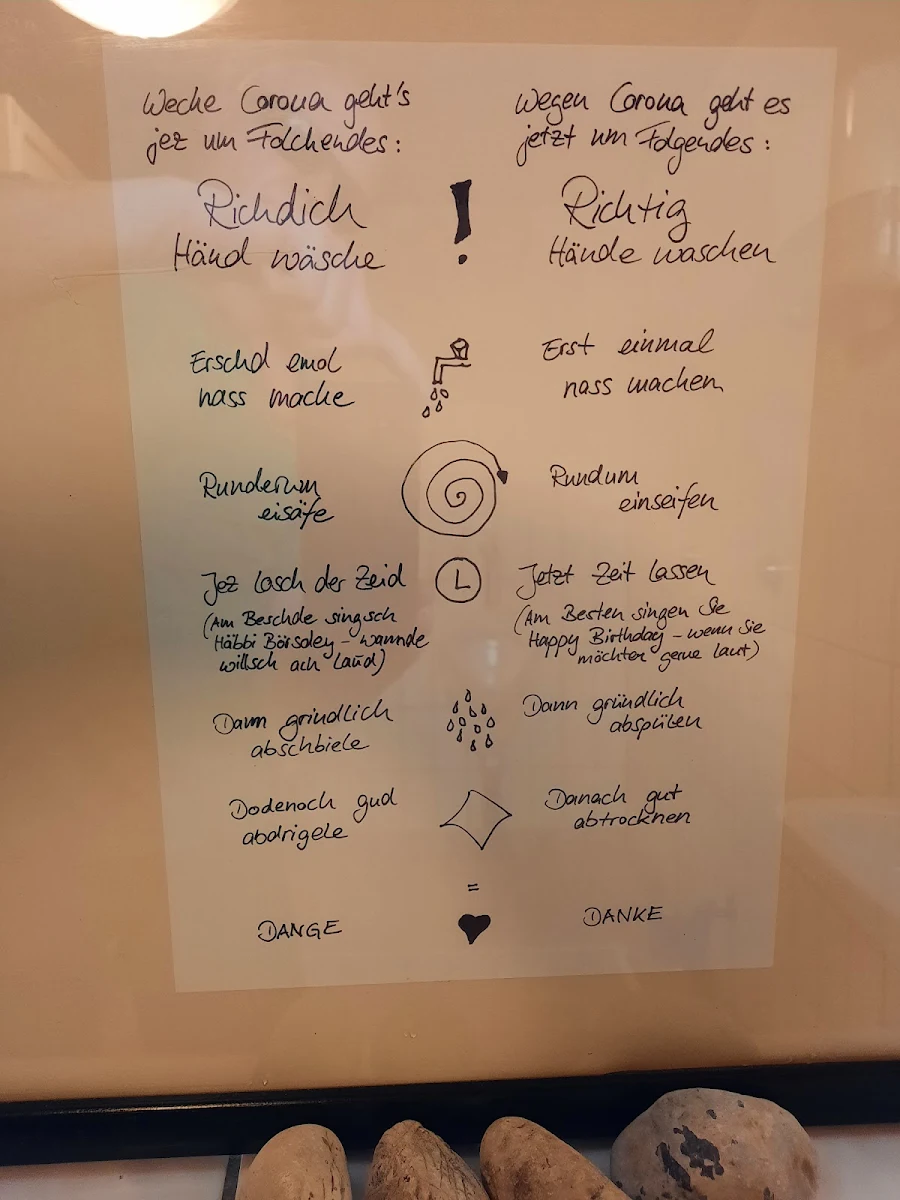 Weche Corona geht's
jez um Folchendes:
Richdich
Händ wäsche
!
Wegen Corona geht es
jetzt um Folgendes:
Richtig
Hände waschen
Erschd emol
nass mache
Erst einmal
nass machen
Runderum
eisäfe
Rundum
einseifen
Jez losch der Zeid
(Am Beschde singsch
Häbbi Börsdey - wannde
willsch ach laud)
Jetzt Zeit lassen
(Am Besten singen Sie
Happy Birthday - wenn Sie
möchten gerne laut)
Dann grindlich
abschbiele
Dann gründlich
abspülen
Dodenoch gud
abdrigele
Danach gut
abtrocknen
=
DANGE
DANKE